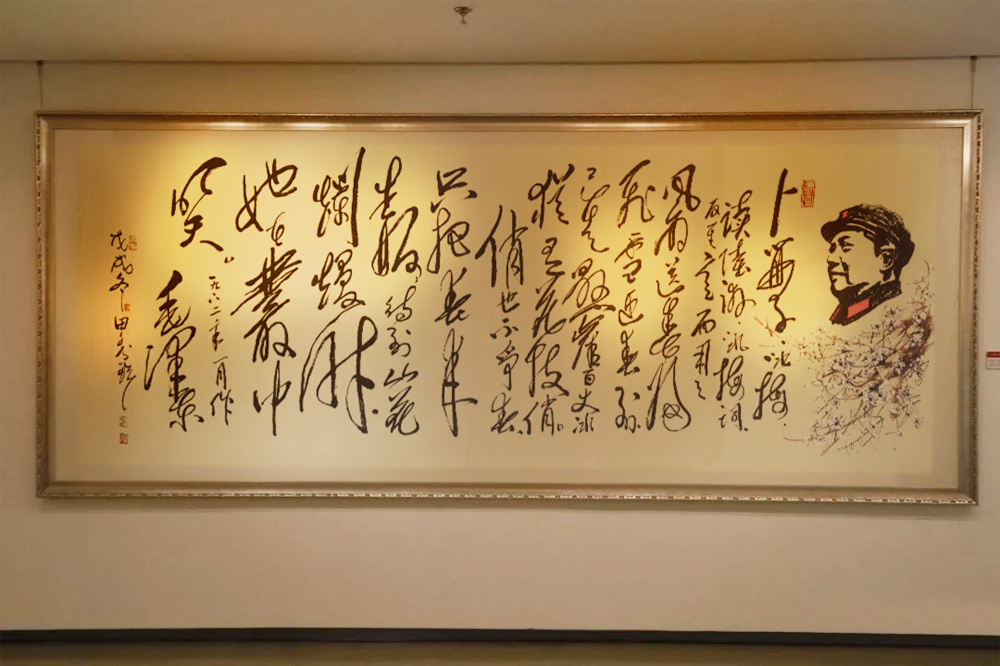 卜算子·咏梅.
读陆游咏梅词.
反其意而用之
风雨送春归
飞雪迎春到
已是悬崖百丈冰
犹有花枝俏。
俏也不争春
只把春来
報，待到山花
爛熳時
她在丛中
笑。
一九六二年一月作
毛泽东
戊戌冬田